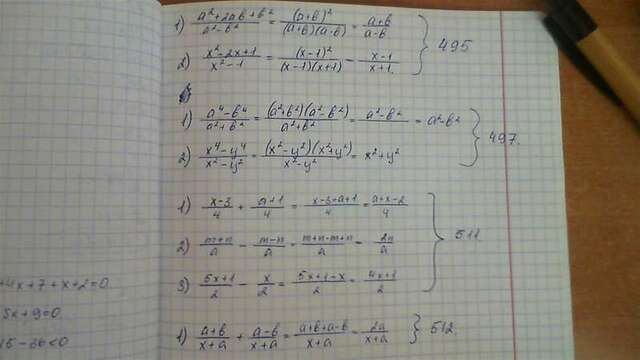 1) (a²+2ab+b²)/(a²-b²) = (a+b)²/((a+b)(a-b)) = (a+b)/(a-b)
2) (x²-2x+1)/(x²-1) = (x-1)²/((x-1)(x+1)) - (x-1)/(x+1) } 495
1) (a⁴-b⁴)/(a²+b²) = ((a²+b²)(a²-b²))/(a²+b²) = (a²-b²)/ = a²-b²
2) (x⁴-y⁴)/(x²-y²) = ((x²-y²)(x²+y²))/(x²-y²) = x²+y² } 497.
1) (x-3)/4 + (a+1)/4 = (x-3+a+1)/4 = (a+x-2)/4
2) (m+n)/a - (m-n)/a = (m+n-m+n)/a = 2n/a } 511
3) (5x+1)/2 - x/2 = (5x+1-x)/2 = (4x+1)/2
1) (a+b)/(x+a) + (a-b)/(x+a) = (a+b+a-b)/(x+a) = 2a/(x+a) } 512
+4x+7+x+2=0
5x+9=0